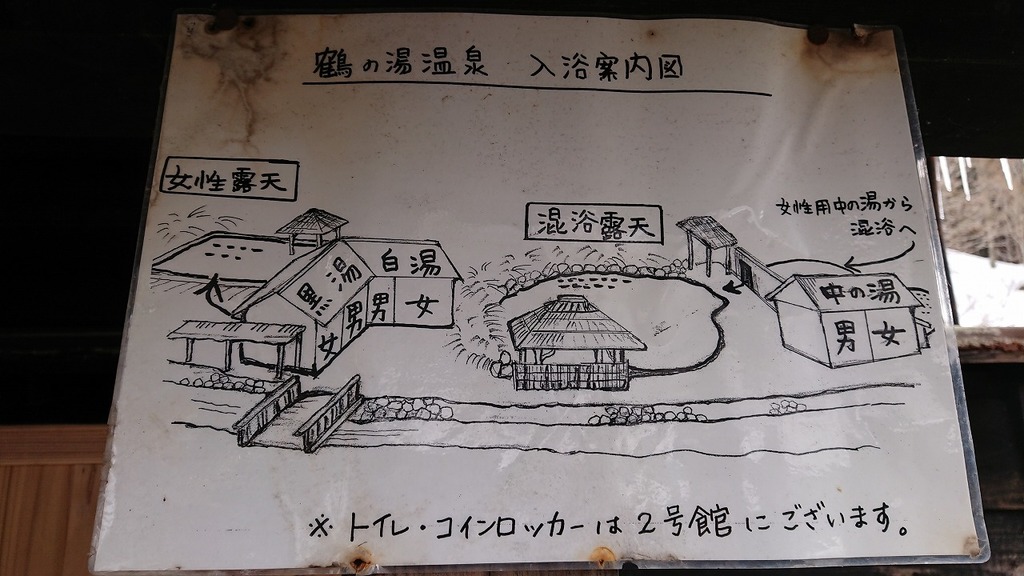 鶴の湯温泉 入浴案内図
女性露天
混浴露天
女性用中の湯から
混浴へ
黒湯
白湯
女 男
男 女
中の湯
男 女
※ トイレ・コインロッカーは2号館にございます。